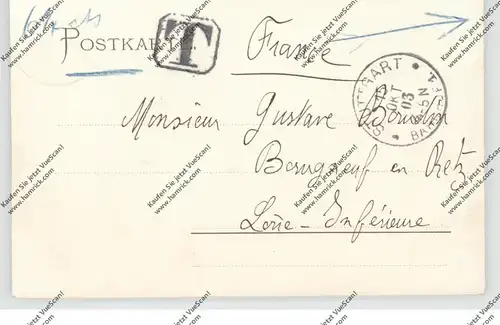 POSTKARTE
T
France
STUTTGART
15
OKT
03
5-N
Monsieur Gustave
Bourgneuf en Retz
Loire-Inférieure
Kaufen Sie jetzt VueScan!
www.hamrick.com